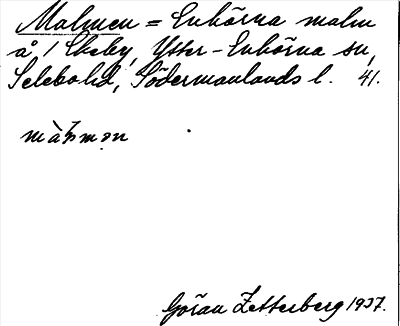 Malmen = Enhörna malm
å 1 Ekeby, Ytter-Enhörna sn,
Selebohd, Södermanlands l. 41.
màɫmən
Göran Zetterberg 1937.